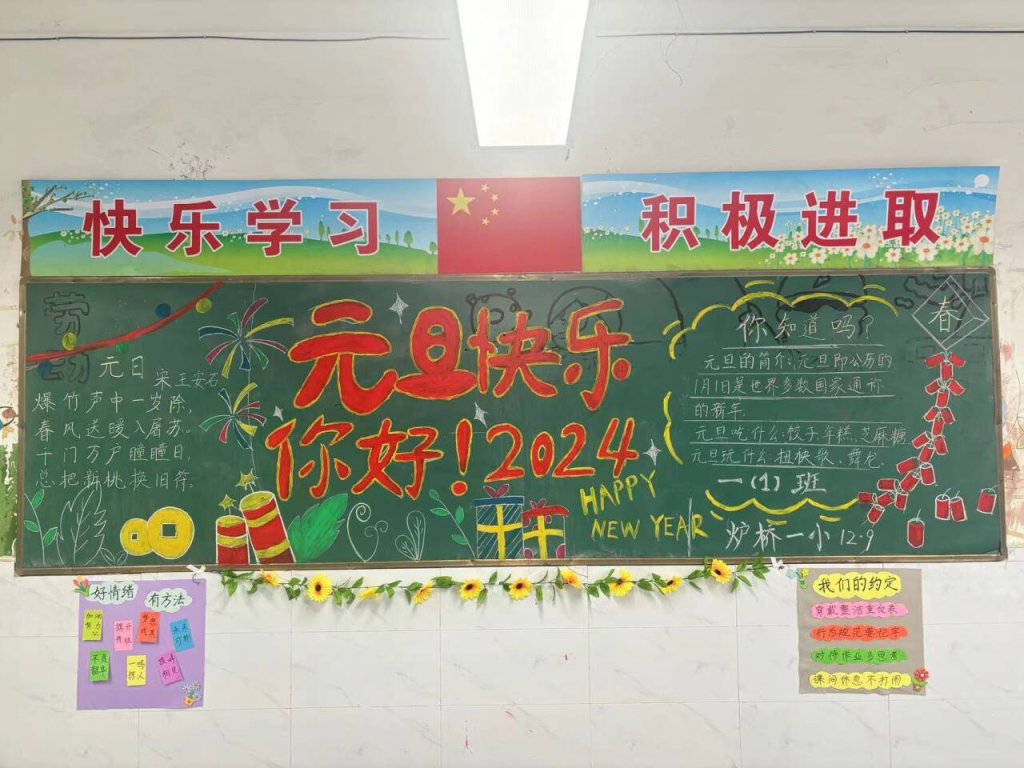 快乐学习
积极进取
元旦快乐
你好！2024
HAPPY
NEW YEAR
元日
宋 王安石
爆竹声中一岁除，
春风送暖入屠苏。
千门万户瞳瞳日，
总把新桃换旧符。
劳动
你知道吗？
元旦的简介：元旦即公历的
1月1日是世界多数国家通称
的新年．
元旦吃什么：饺子、年糕、芝麻糖．
元旦玩什么：扭秧歌、舞龙．
一(1)班
炉桥一小 12·9
春
好情绪 有方法
加油
努力
不负
韶华
一鸣
惊人
未来
可期
我们的约定
穿戴整洁重仪表
行为规范要记牢
对待作业多思考
课间休息不打闹